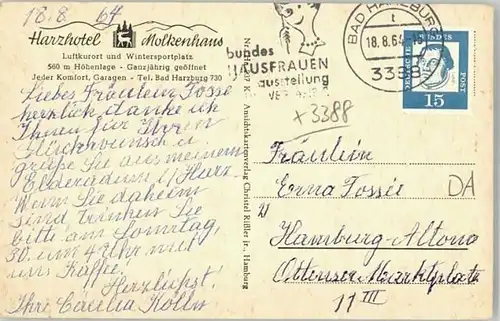 18.8.64
Harzhotel Molkenhaus
Luftkurort und Wintersportplatz
560 m Höhenlage - Ganzjährig geöffnet
Jeder Komfort, Garagen - Tel. Bad Harzburg 730
Liebes Fräulein Fosse
herzlich danke ich
Ihnen für Ihren
Glückwunsch u.
grüße Sie aus meinem
Elderadium i/Harz.
Wenn Sie daheim
sind trinken Sie
bitte am Sonntag,
30. um 4 Uhr mit
uns Kaffee!
Herzlichst!
Ihre Caecilia Kölln
Ansichtskartenverlag Christel Riffler jr., Hamburg
bundes
HAUSFRAUEN
ausstellung
BAD HARZBURG
t
18.8.64
3388
DEUTSCHE BUNDESPOST
15
+3388
Fräulein
Erna Fossée
DA
Hamburg-Altona
Ottenser Marktplatz
11 III